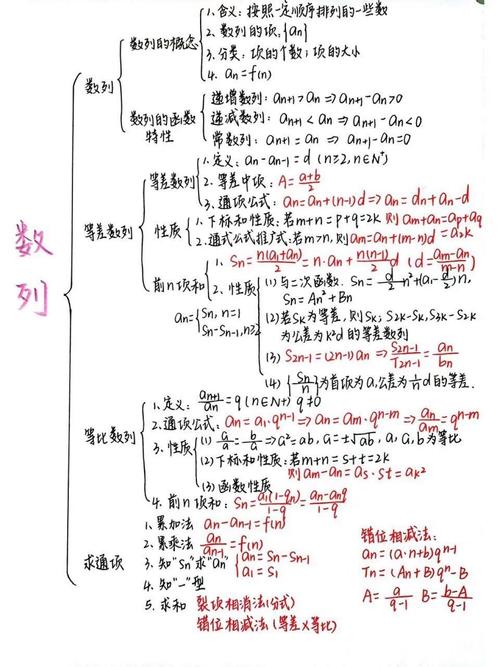 数列
数列
数列的概念
1. 含义: 按照一定顺序排列的一些数
2. 数列的项: {an}
3. 分类: 项的个数; 项的大小
4. an=f(n)
数列的函数特性
递增数列: an+1>an ⇒ an+1-an>0
递减数列: an+1<an ⇒ an+1-an<0
常数列: an+1=an ⇒ an+1-an=0
等差数列
等差数列
1. 定义: an-an-1=d (n≥2, n∈N+)
2. 等差中项: A=(a+b)/2
3. 通项公式: an=a1+(n-1)d ⇒ an=dn+a1-d
性质
1. 下标和性质: 若m+n=p+q=2k 则am+an=ap+aq=2ak
2. 通式公式推广式: 若m>n, 则am=an+(m-n)d
前n项和
1. Sn=n(a1+an)/2=n·a1+n(n-1)/2 d (d=(am-an)/(m-n))
2. 性质
(1) 与二次函数. Sn=d/2 n²+(a1-d/2)n,
Sn=An²+Bn
(2) 若Sk为等差, 则Sk, S2k-Sk, S3k-S2k
为公差为k²d的等差数列
(3) S2n-1=(2n-1)an ⇒ S2n-1/T2n-1=an/bn
(4) {Sn/n}为首项为a1公差为
d的等差.
an={S1, n=1
Sn-Sn-1, n≥2
等比数列
1. 定义: an+1/an=q (n∈N+) q≠0
2. 通项公式: an=a1·qn-1 ⇒ an=am·qn-m ⇒ an/am=qn-m
3. 性质
(1) a/a=b/a ⇒ a²=ab, a=±√ab, a, a, b为等比
(2) 下标和性质: 若m+n=s+t=2k
则am·an=as·st=ak²
(3) 函数性质
4. 前n项和: Sn=a1(1-qn)/(1-q)=(a1-anq)/(1-q)
求通项
1. 累加法 an-an-1=f(n)
2. 累乘法 an/an-1=f(n)
3. 知"Sn"求"an" {an=Sn-Sn-1
a1=S1
4. 知"-"型
5. 求和 裂项相消法(分式)
错位相减法(等差×等比)
错位相减法:
an=(a·n+b)qn-1
Tn=(An+B)qn-B
A=a/(q-1) B=(b-A)/(q-1)